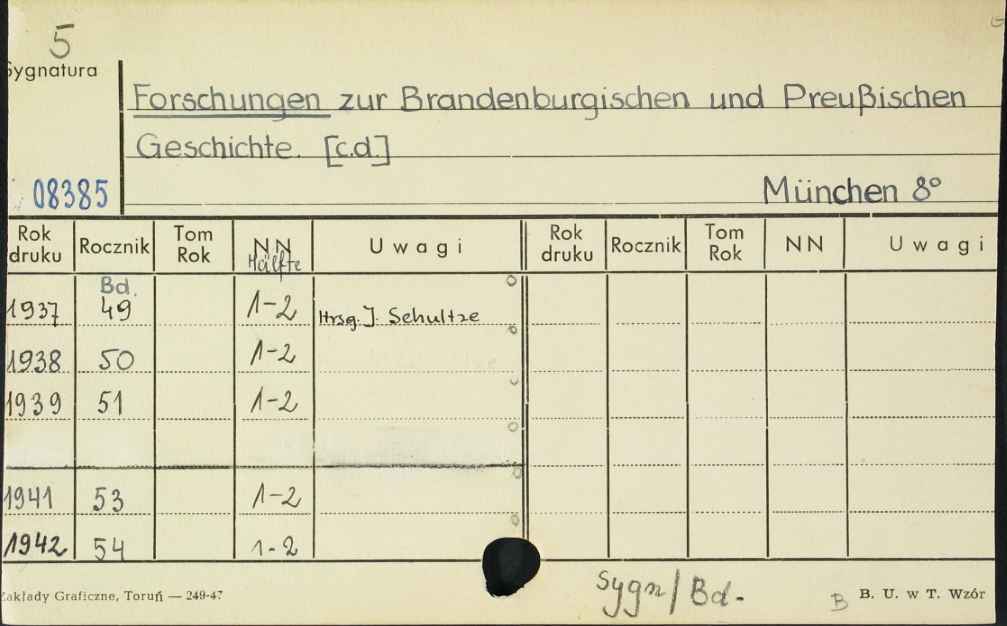 5
Sygnatura
Forschungen zur Brandenburgischen und Preußischen
Geschichte. [c.d.]
08385
München 8°
Rok druku Rocznik Tom Rok NN Hälfte Uwagi Rok druku Rocznik Tom Rok NN Uwagi
Bd.
1937 49 1-2 Hrsg. J. Schultze
1938 50 1-2
1939 51 1-2
1941 53 1-2
1942 54 1-2
Sygn/Bd.-
Zakłady Graficzne, Toruń — 249-47
B B. U. w T. Wzór